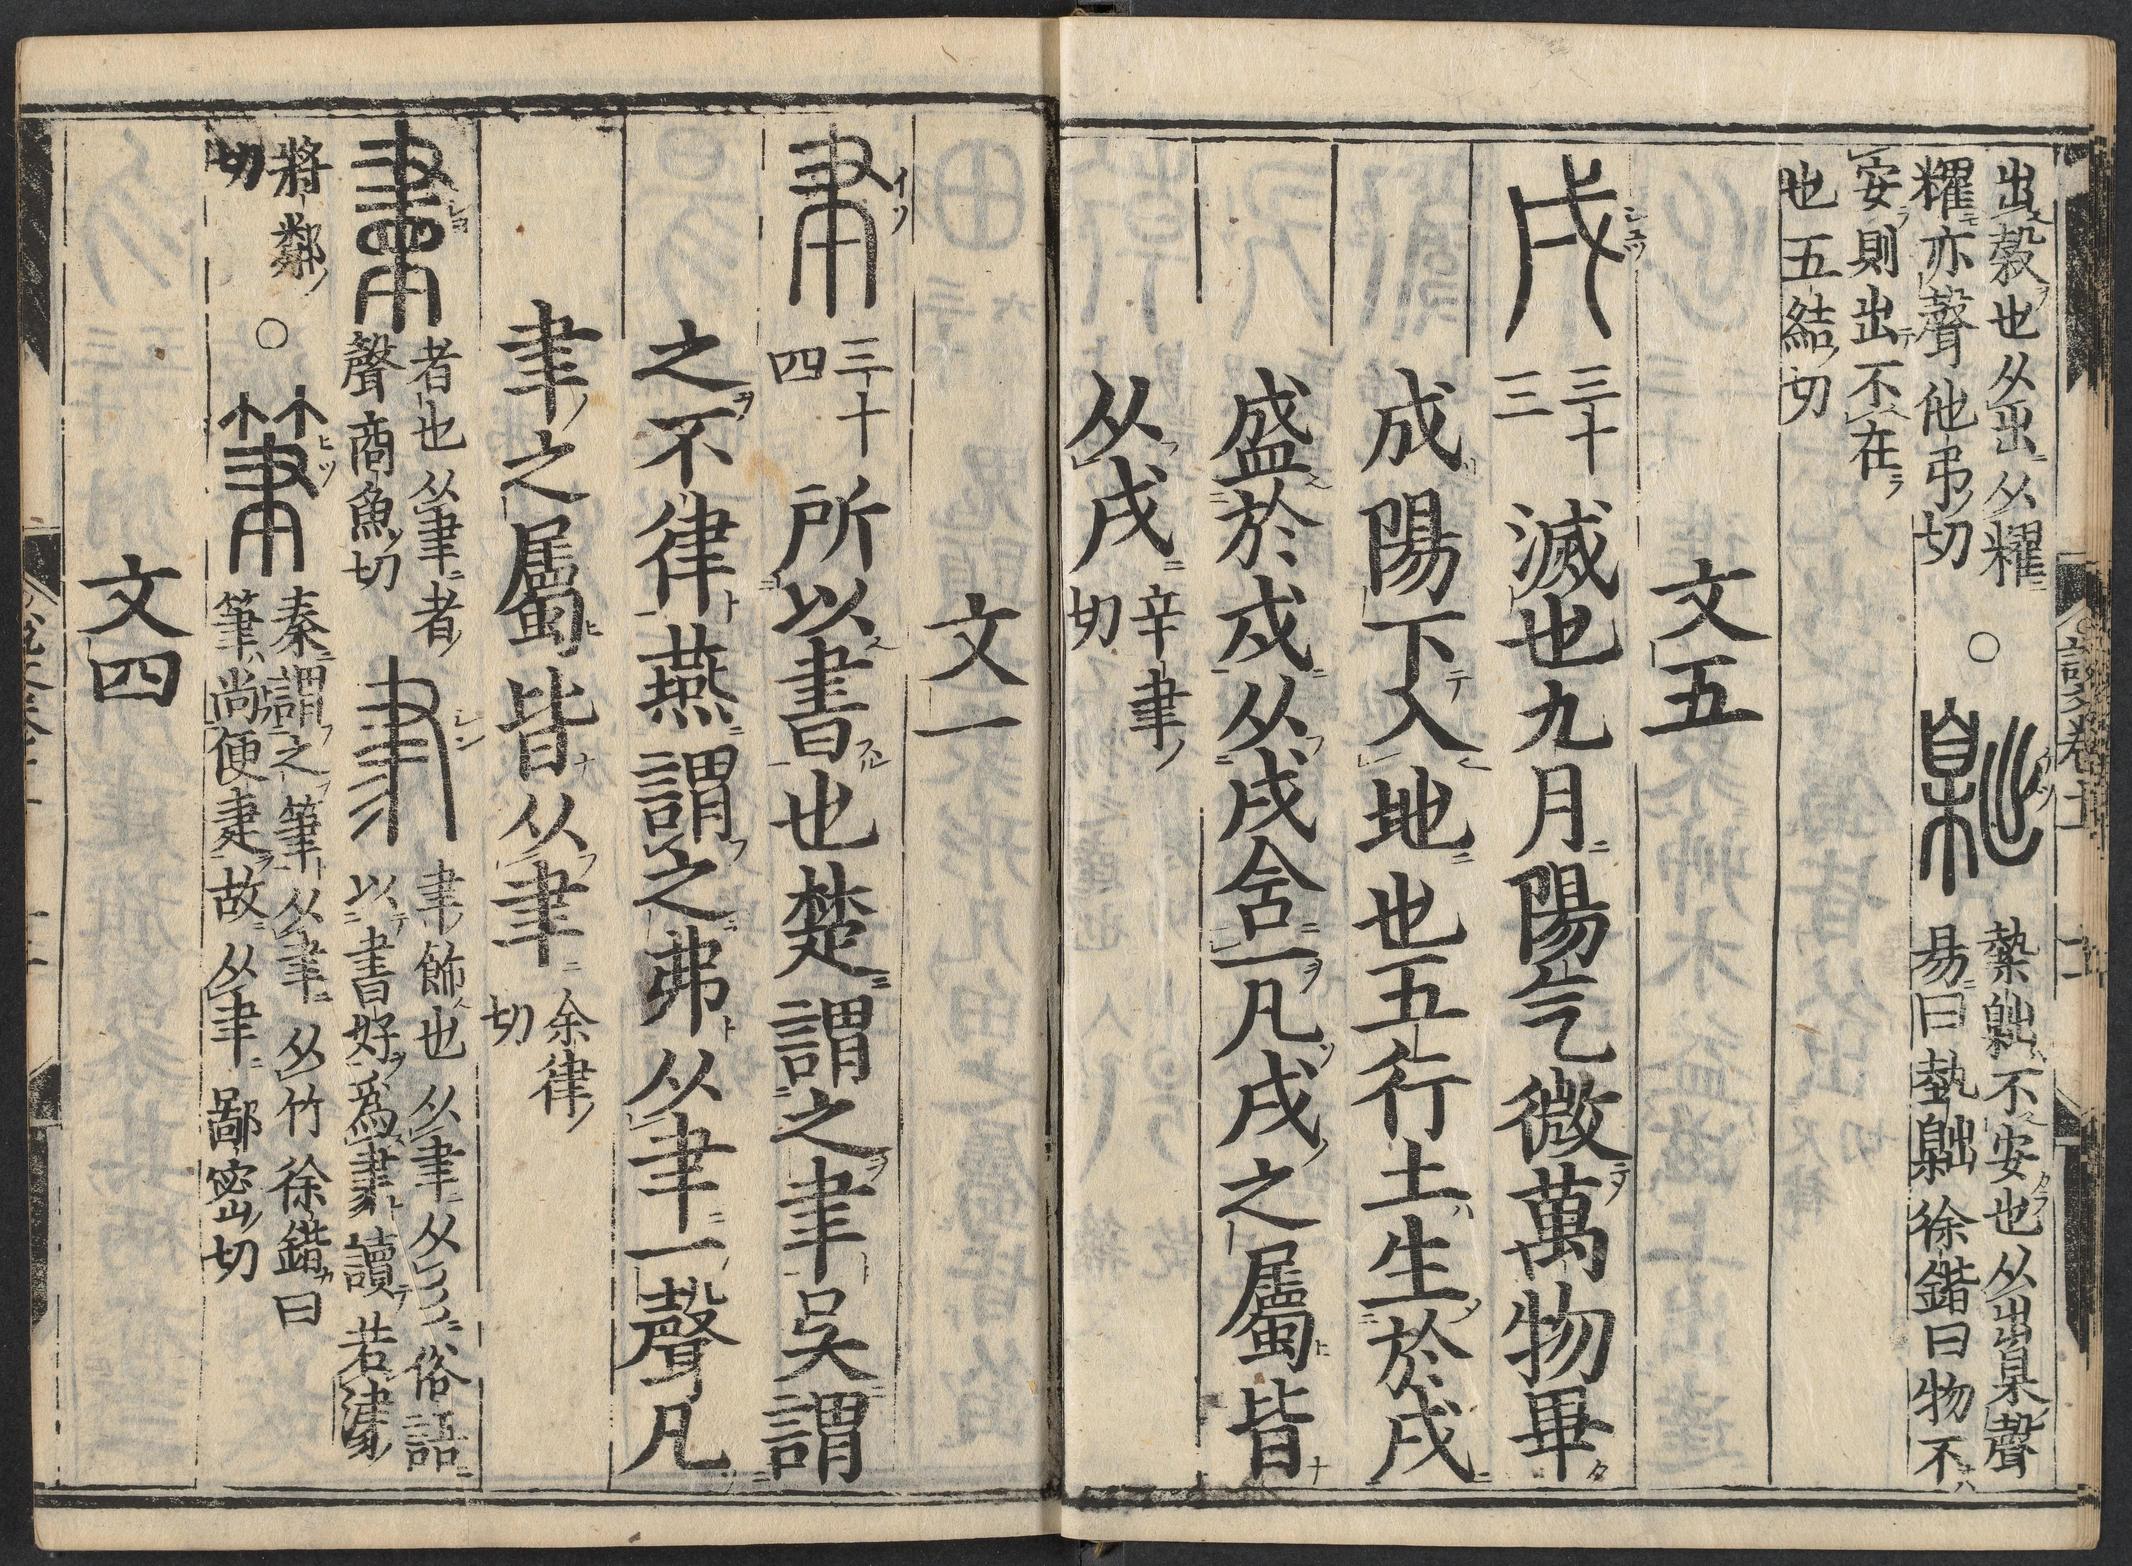 出穀也从出从糶
糶亦聲他弔切 ○ 𣎴
槷䵳不安也从出臬聲
易曰槷䵳徐鍇曰物不
安則出不在
也五結切
文五
戌 三十三 滅也九月陽气微萬物畢
成陽下入地也五行土生於戌
盛於戊从戊含一凡戌之屬皆
从戌 辛聿切
文一
聿 三十四 所以書也楚謂之聿吳謂
之不律燕謂之弗从聿一聲凡
聿之屬皆从聿 余律切
書 者也从聿者
聲商魚切
𦘔 聿飾也从聿从彡俗語
以書好爲𦘔讀若津
將鄰切 ○ 筆
秦謂之筆从聿从竹徐鍇曰
筆尚便疌故从聿鄙密切
文四